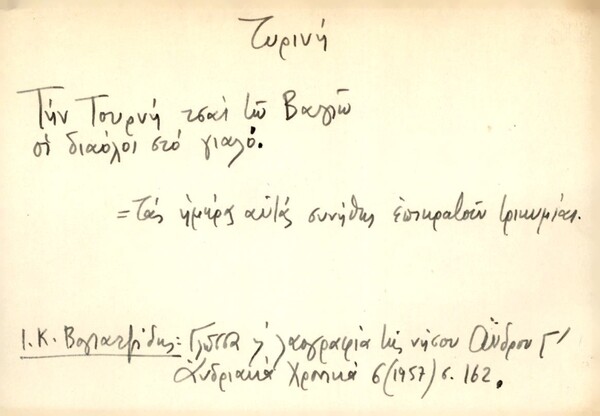 Τυρινή
Τὴν Τουρνὴ τσαὶ τῶ Βαγιῶ
οἱ διαόλοι στὸ γιαλό.
= Τὰς ἡμέρας αὐτὰς συνήθως ἐπικρατοῦν τρικυμίαι.
Ι. Κ. Βογιατζίδης: Γλῶσσα κ' λαογραφία τῆς νήσου Ἄνδρου Γ'
Ἀνδριακὰ Χρονικὰ 6 (1957) σ. 162.